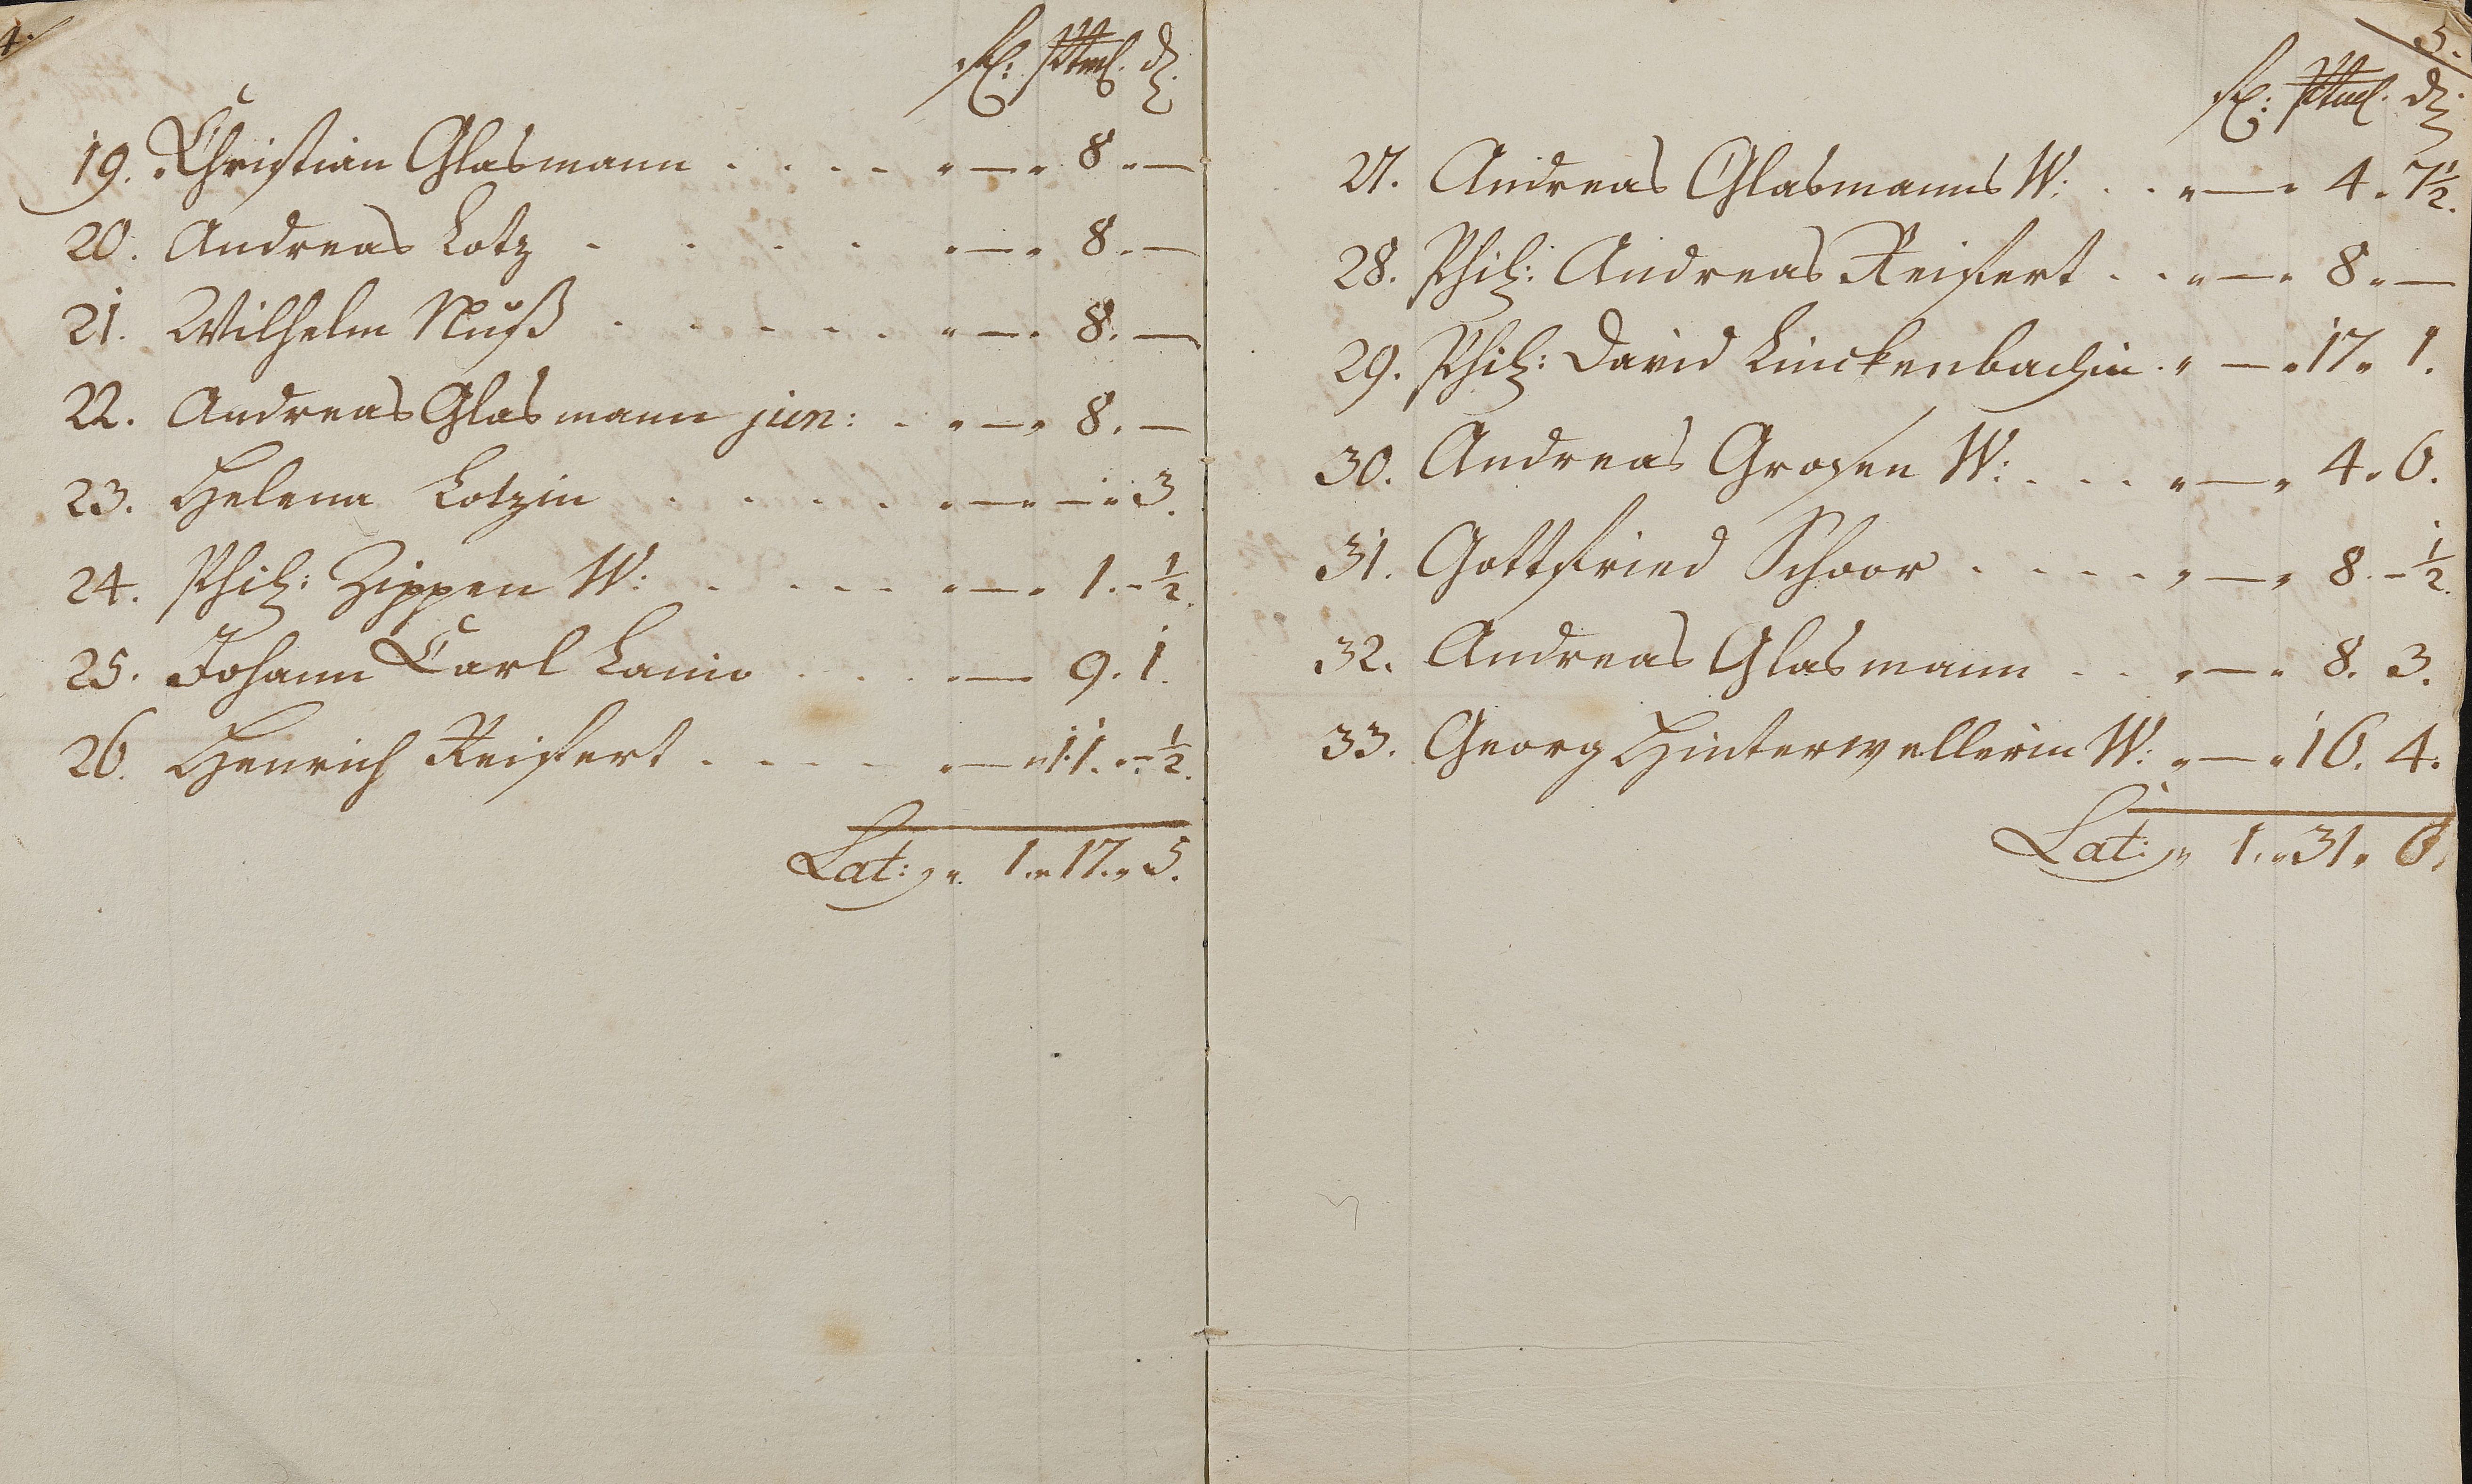 4.
19. Christian Glasmann . . . . " — " 8 " —
20. Andreas Lotz . . . . " — " 8 . —
21. Wilhelm Nuß . . . . . " — " 8. —
22. Andreas Glasmann jun: . " — " 8. —
23. Helena Lotzin . . . . " — " — " 3.
24. Phil: Zippen W: . . . . " — " 1. - ½.
25. Johann Carl Lanio . . . " — 9. 1.
26. Henrich Reifert . . . . " — " 11. " - ½.
Lat: " 1. " 17. " 5.
5.
27. Andreas Glasmanns W: . . " — " 4. 7½.
28. Phil: Andreas Reifert . . " — " 8 " —
29. Phil: David Linckenbachin . " — " 17 " 1.
30. Andreas Grosen W: . . . " — " 4. 6.
31. Gottfried Schoor . . . . " — " 8. - ½.
32. Andreas Glasmann . . " — " 8. 3.
33. Georg Hinterwellerin W: " — " 16. 4.
Lat: " 1. " 31 " 6.